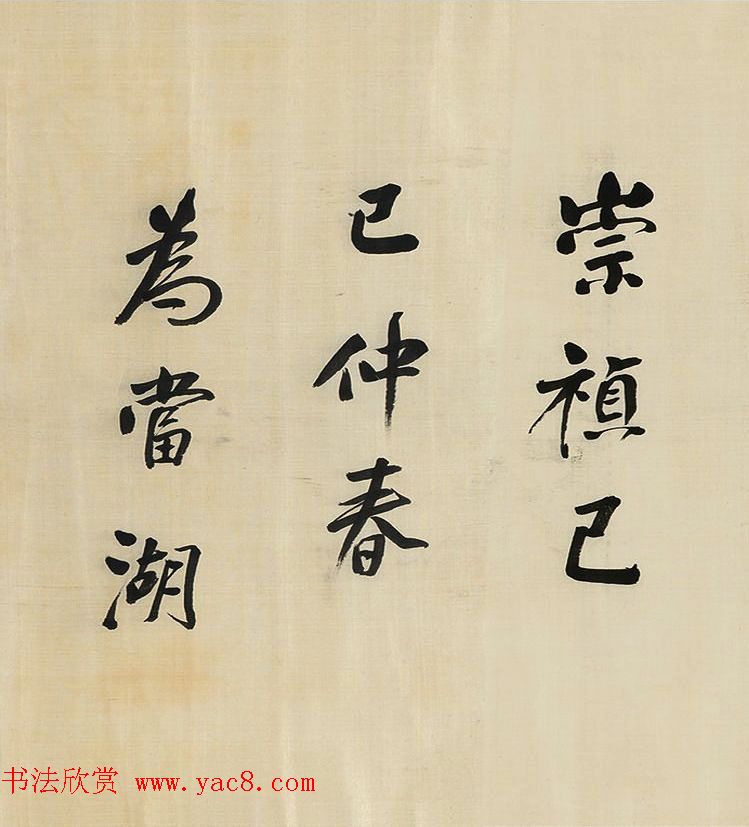 崇禎己
巳仲春
為當湖
书法欣赏 www.yac8.com